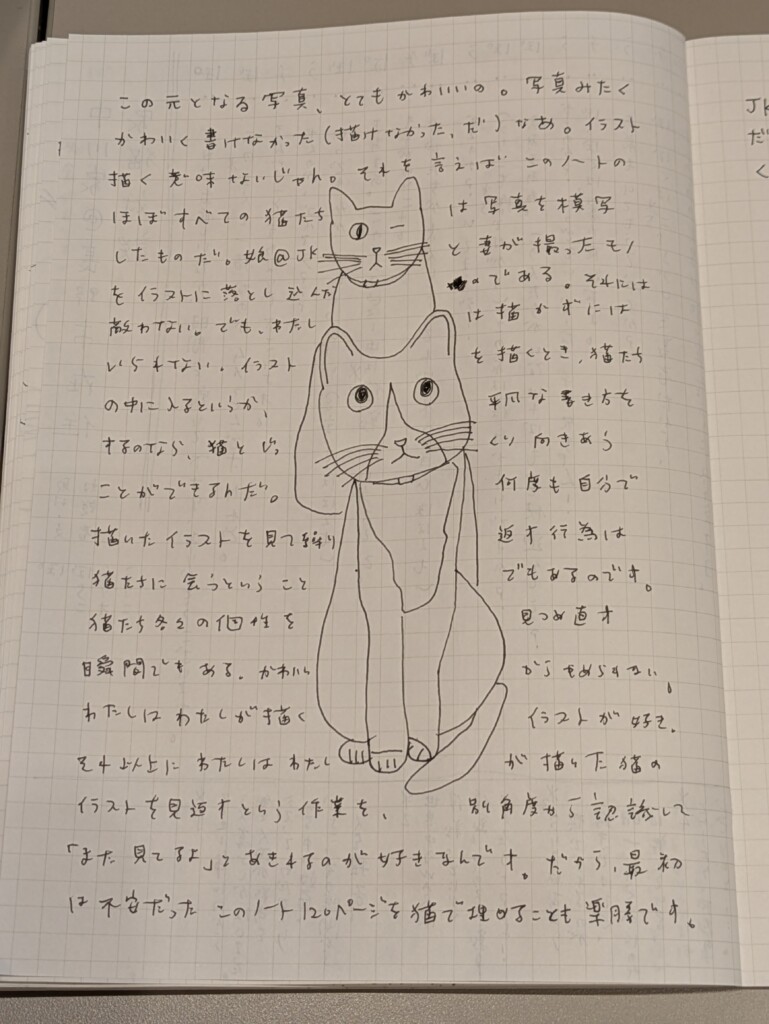 この元となる写真、とてもかわいいの。写真みたく
かわいく書けなかった(描けなかった、だ)なあ。イラスト
描く意味ないじゃん。それを言えばこのノートの
ほぼすべての猫たちは写真を模写
したものだ。娘@JKと妻が撮ったモノ
をイラストに落とし込んだのである。それには
敵わない。でも、わたしは描かずには
いられない。イラストを描くとき、猫たち
の中に入るというか、平凡な書き方を
するのなら、猫とじっくり向きあう
ことができるんだ。何度も自分で
描いたイラストを見て繰り返す行為は
猫たちに会うということでもあるのです。
猫たち各々の個性を見つめ直す
瞬間でもある。かわいいからもめられない。
わたしはわたしが描くイラストが好き。
それ以上にわたしはわたしが描いた猫の
イラストを見返すという作業を、別角度から認識して
「また見てるよ」とあきれるのが好きなんです。だから、最初
は不安だったこのノート120ページを猫で埋めることも楽勝です。
JK
だ
く